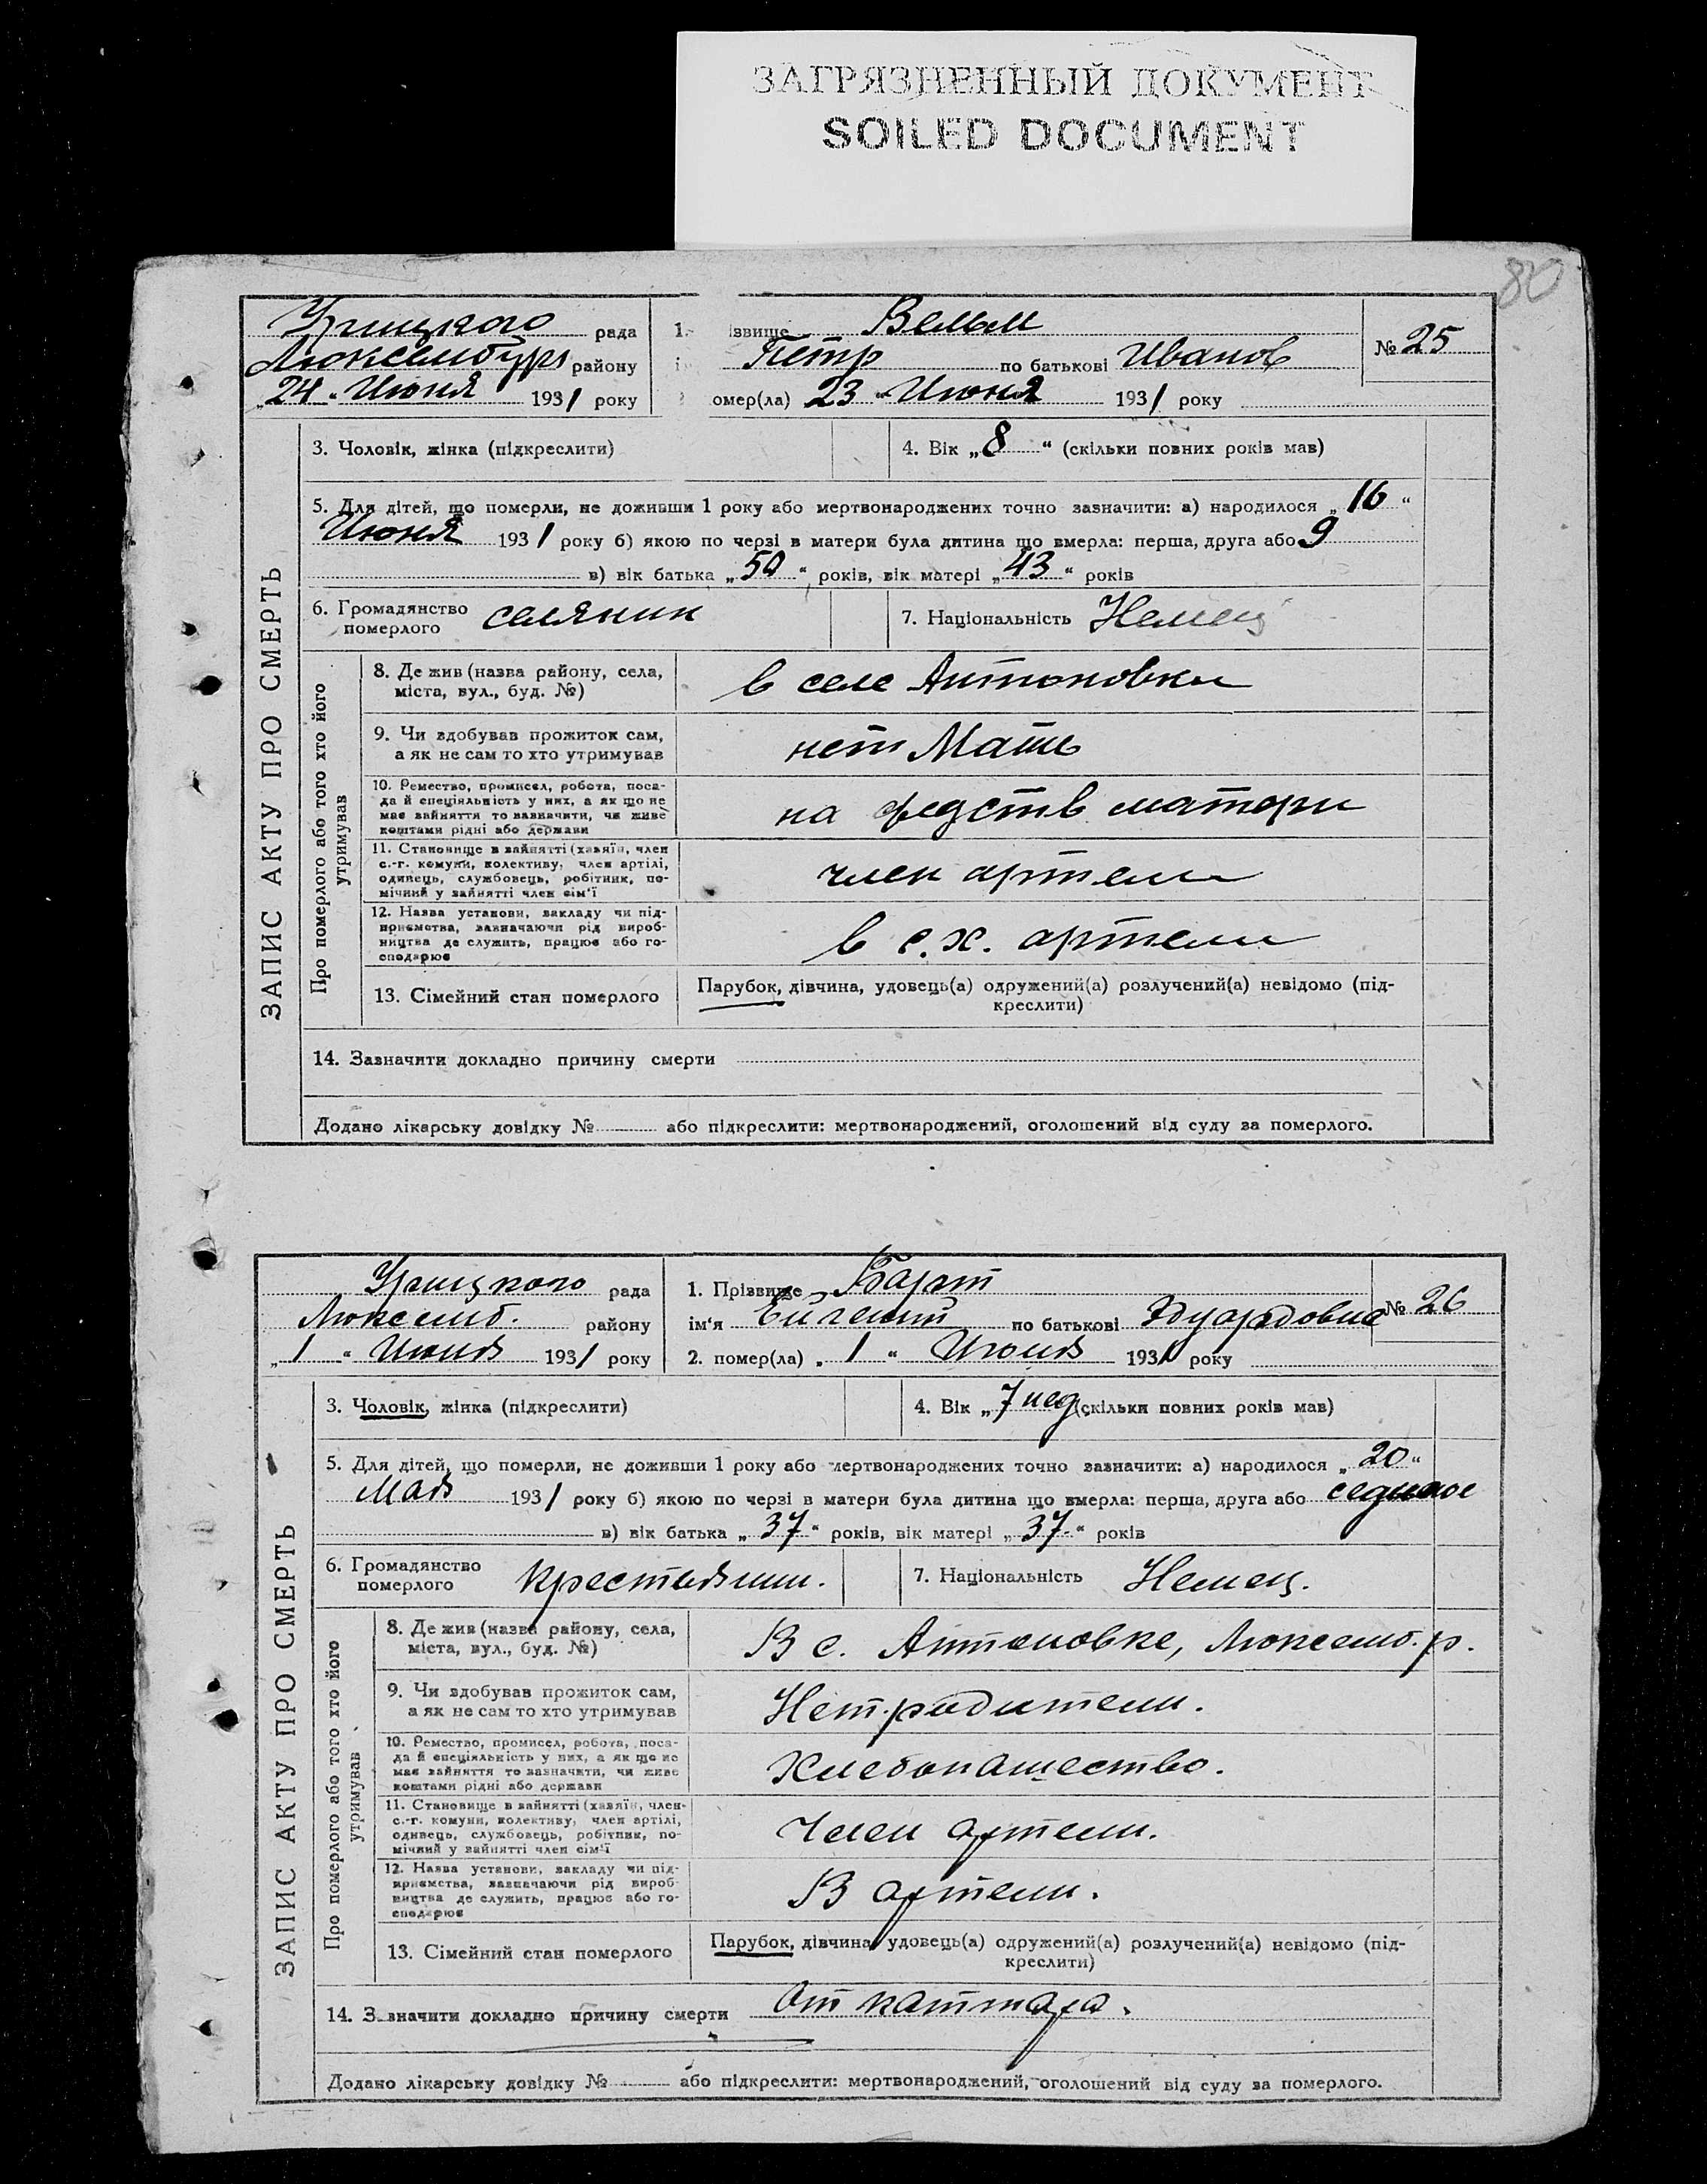 ЗАГРЯЗНЕННЫЙ ДОКУМЕНТ
SOILED DOCUMENT
80
Урицкого рада
Люксембург району
„24" Июня 1931 року
1. ізвище Вельм
Петр по батькові Иванов
омер(ла) 23 " Июня 1931 року
№ 25
ЗАПИС АКТУ ПРО СМЕРТЬ
3. Чоловік, жінка (підкреслити)
4. Вік „8" (скільки повних років мав)
5. Для дітей, що померли, не доживши 1 року або мертвонароджених точно зазначити: а) народилося „16"
Июня 1931 року б) якою по черзі в матери була дитина що вмерла: перша, друга або 9
в) вік батька „50" років, вік матері „43" років
6. Громадянство
померлого селянин
7. Національність Немец
Про померлого або того хто його
утримував
8. Де жив (назва району, села,
міста, вул., буд. №)
в селе Антоновки
9. Чи здобував прожиток сам,
а як не сам то хто утримував
нет Мать
10. Ремество, промисел, робота, поса-
да й спеціяльність у них, а як що не
має зайняття то зазначити, чи живе
коштами рідні або держави
на средств матери
11. Становище в зайнятті (хазяїн, член
с.-г. комуни, колективу, член артілі,
одинець, службовець, робітник, по-
мічний у зайнятті член сім'ї
член артели
12. Назва установи, закладу чи під-
приємства, зазначаючи рід вироб-
ництва де служить, працює або го-
сподарює
в с.х. артели
13. Сімейний стан померлого
Парубок, дівчина, удовець(а) одружений(а) розлучений(а) невідомо (під-
креслити)
14. Зазначити докладно причину смерти
Додано лікарську довідку № або підкреслити: мертвонароджений, оголошений від суду за померлого.
Урицкого рада
Люксемб. району
„1" Июня 1931 року
1. Прізвище Барт
ім'я по батькові Эдуардовна
2. помер(ла) „1" Июня 1931 року
№ 26
ЗАПИС АКТУ ПРО СМЕРТЬ
3. Чоловік, жінка (підкреслити)
4. Вік „7 нед (скільки повних років мав)
5. Для дітей, що померли, не доживши 1 року або мертвонароджених точно зазначити: а) народилося „20"
Мая 1931 року б) якою по черзі в матери була дитина що вмерла: перша, друга або седьмое
в) вік батька „37" років, вік матері „37" років
6. Громадянство
померлого крестьянин.
7. Національність Немец.
Про померлого або того хто його
утримував
8. Де жив (назва району, села,
міста, вул., буд. №)
В с. Антоновке, Люксемб. р.
9. Чи здобував прожиток сам,
а як не сам то хто утримував
Нет. родители.
10. Ремество, промисел, робота, поса-
да й спеціяльність у них, а як що не
має зайняття то зазначити, чи живе
коштами рідні або держави
Хлебопашество.
11. Становище в зайнятті (хазяїн, член
с.-г. комуни, колективу, член артілі,
одинець, службовець, робітник, по-
мічний у зайнятті член сім'ї
Член артели.
12. Назва установи, закладу чи під-
приємства, зазначаючи рід вироб-
ництва де служить, працює або го-
сподарює
В артели.
13. Сімейний стан померлого
Парубок, дівчина, удовець(а) одружений(а) розлучений(а) невідомо (під-
креслити)
14. Зазначити докладно причину смерти От каттара.
Додано лікарську довідку № або підкреслити: мертвонароджений, оголошений від суду за померлого.